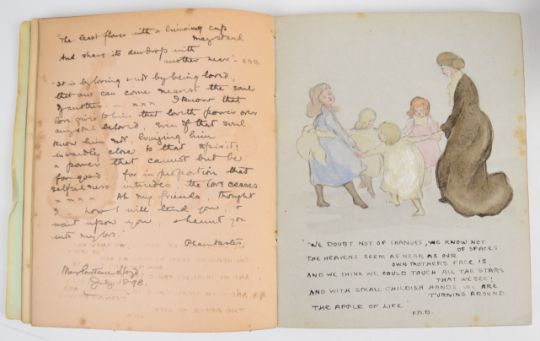 "The least flower with a brimming cup
may stand
And share its dewdrop with
another near". E.B.B.
"It is by loving & not by being loved,
that one can come nearest the soul
of another
I know that
love gives to him that loveth power over
any soul beloved, even if that soul
know him not, bringing him
inwardly close to that spirit;
a power that cannot but be
for good; for in proportion that
selfishness intrudes, the love ceases
Ah my friends, thought
I how I will tend you,
wait upon you, & haunt you
with my love."
Phantastes.
Lloyd.
July. 1898.
"WE DOUBT NOT OF CHANGES, WE KNOW NOT
OF SPACES
THE HEAVENS SEEM AS NEAR AS OUR
OWN MOTHER'S FACE IS
AND WE THINK WE COULD TOUCH ALL THE STARS
THAT WE SEE;
AND WITH SMALL CHILDISH HANDS, WE ARE
TURNING AROUND
THE APPLE OF LIFE